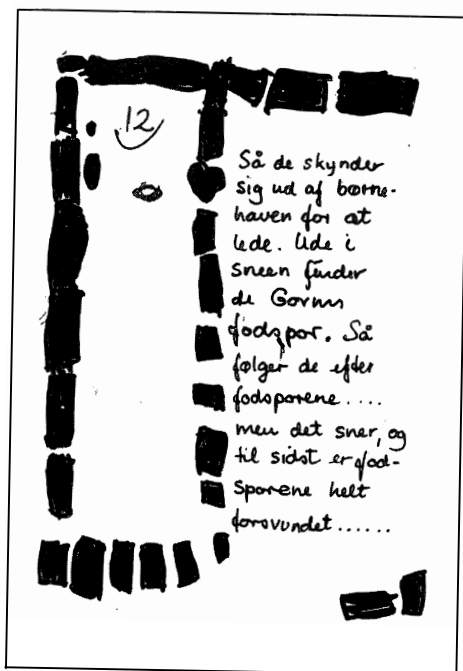 12
Så de skynder
sig ud af børne-
haven for at
lede. Ude i
sneen finder
de Gorms
fodspor. Så
følger de efter
fodsporene....
men det sner, og
til sidst er fod-
sporene helt
forsvundet......